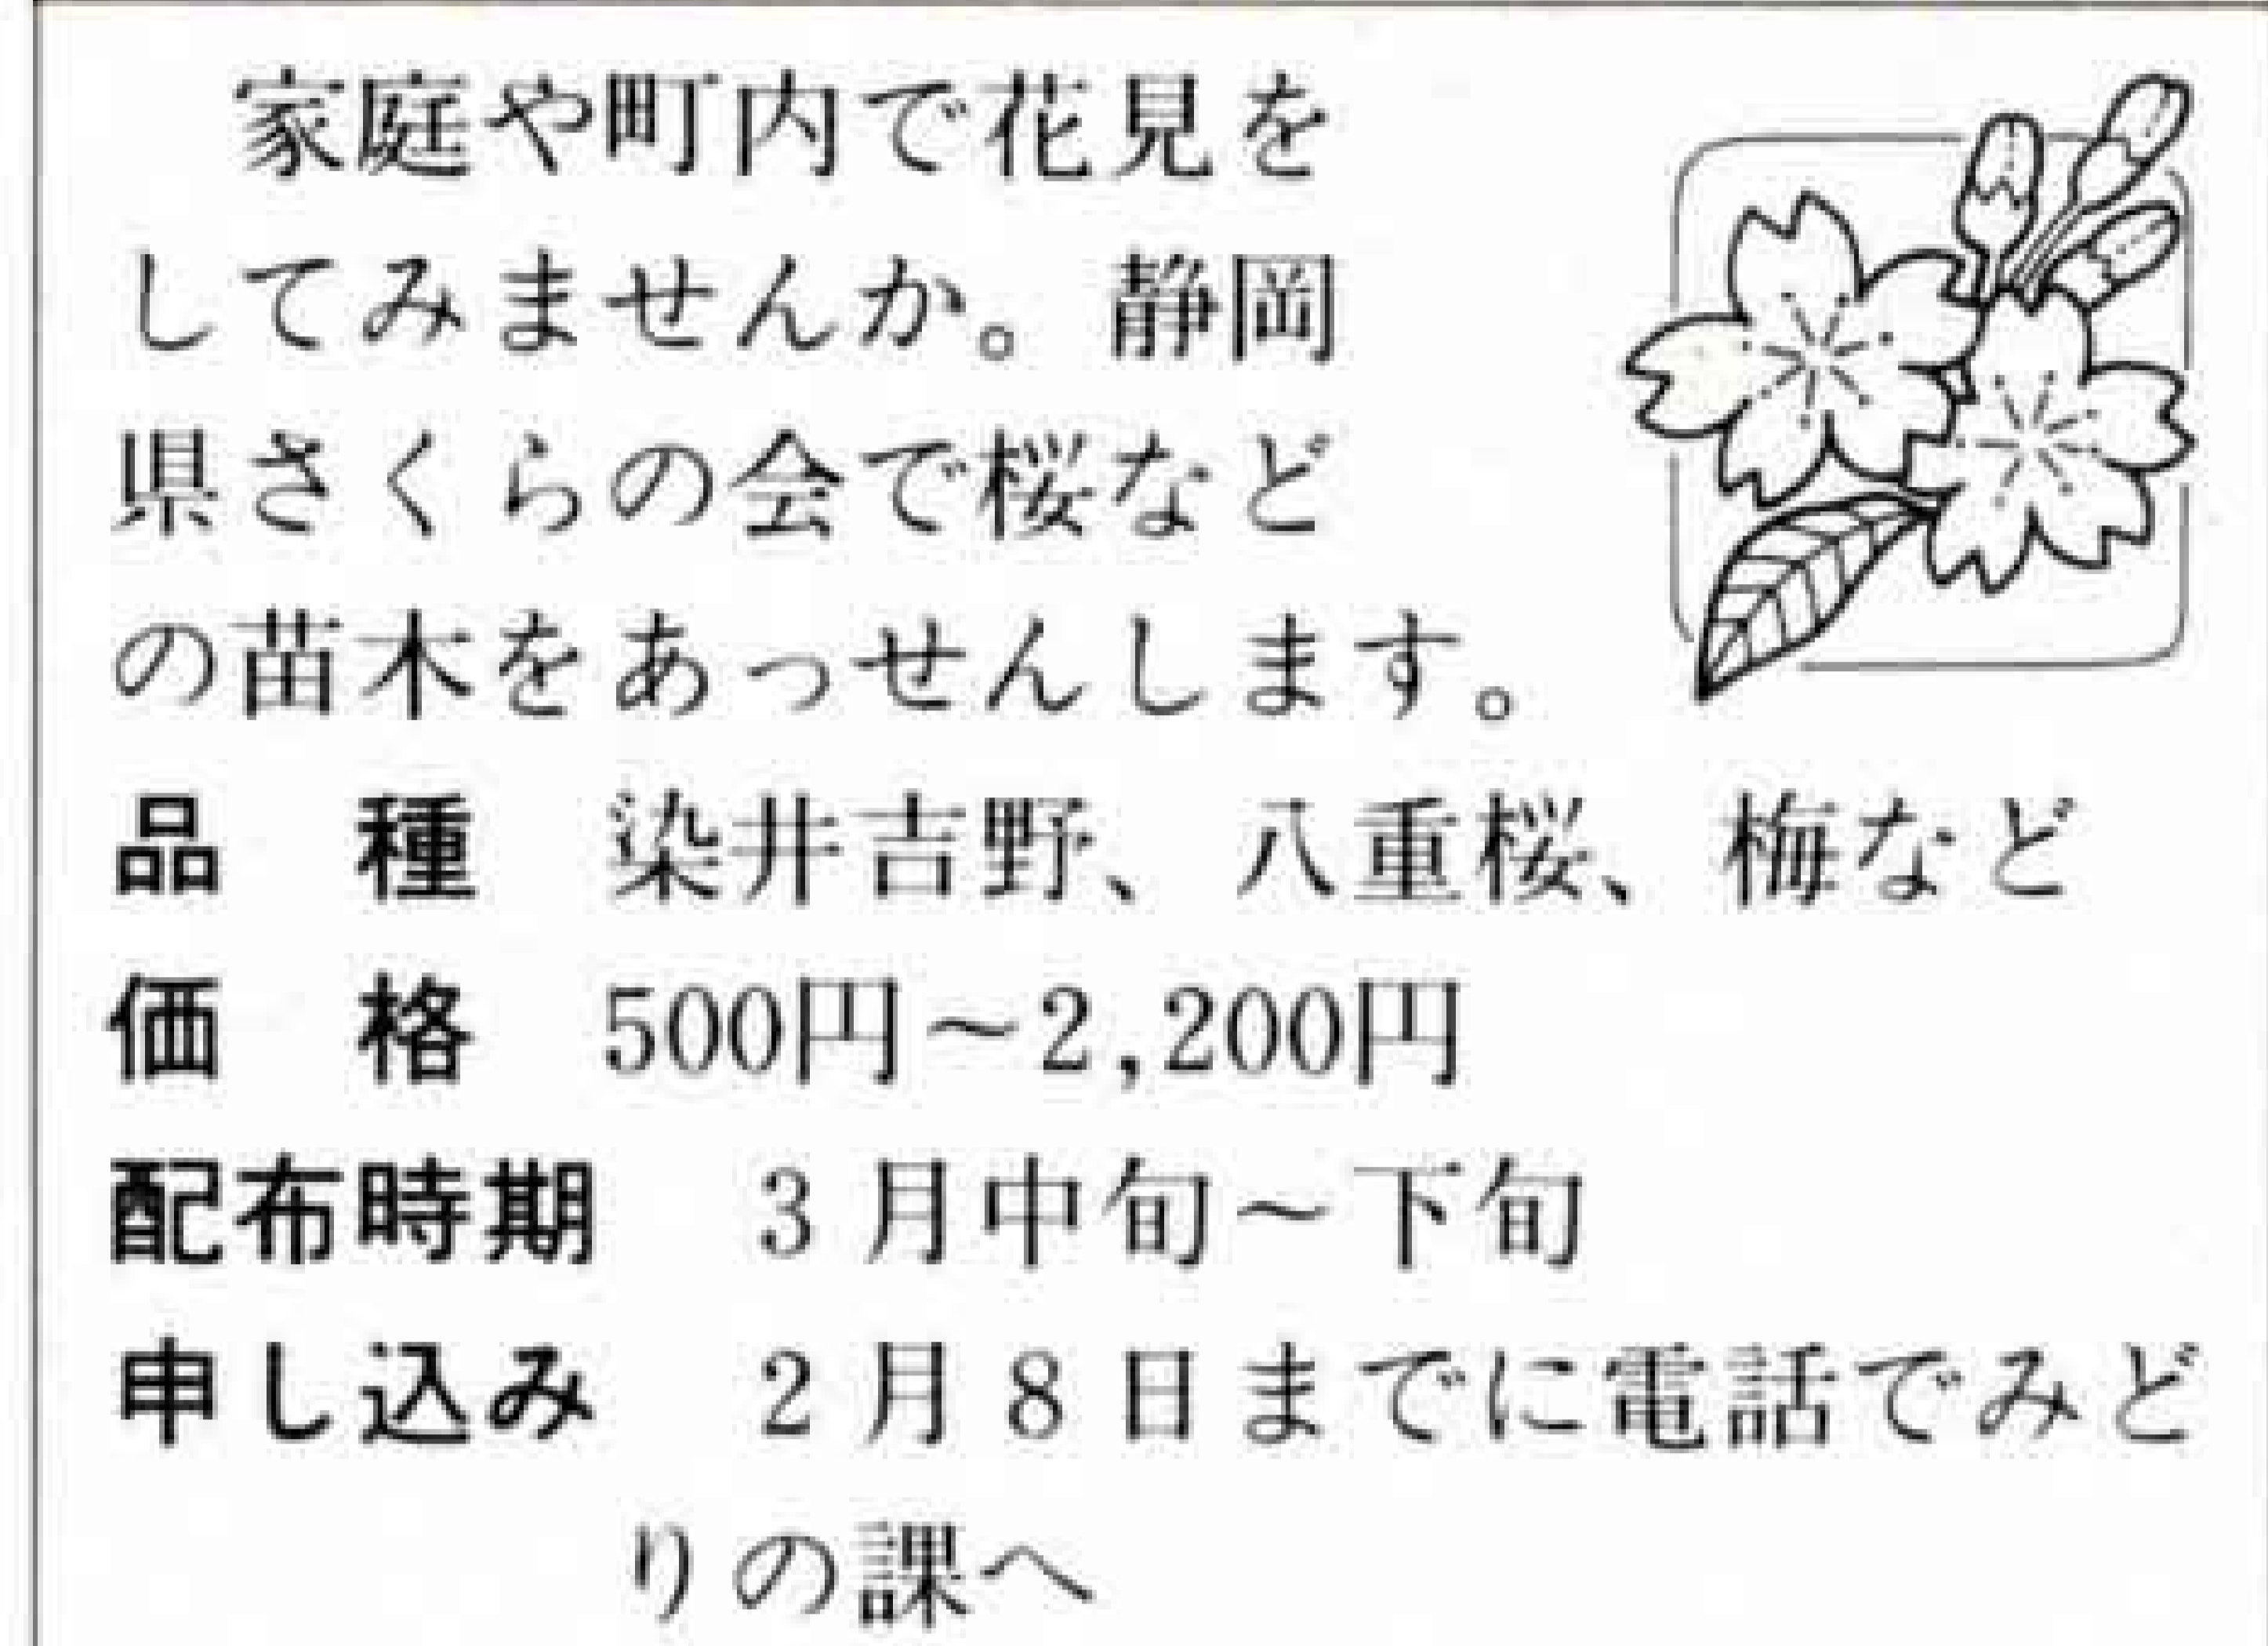 家庭や町内で花見を
してみませんか。静岡
県さくらの会で桜など
の苗木をあっせんします。
品　種　染井吉野、八重桜、梅など
価　格　500円～2,200円
配布時期　3月中旬～下旬
申し込み　2月8日までに電話でみど
りの課へ